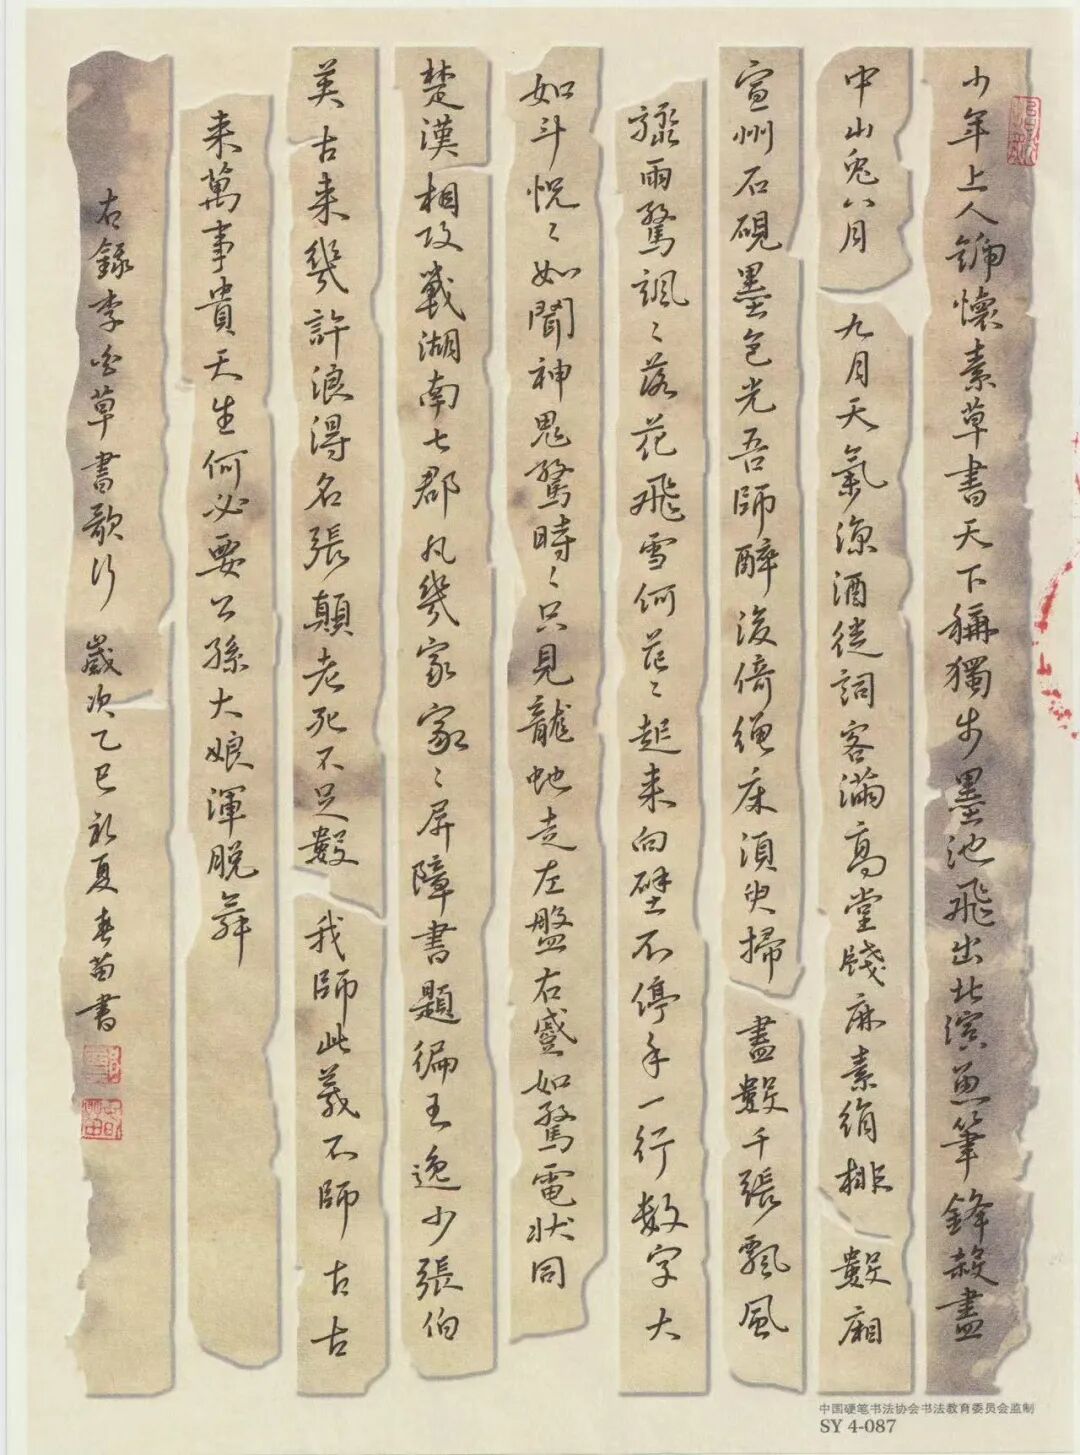 少年上人號懷素草書天下稱獨步墨池飛出北溟魚筆鋒殺盡
中山兔八月九月天氣涼酒徒詞客滿高堂牋麻素絹排數廂
宣州石硯墨色光吾師醉後倚繩床須臾掃盡數千張飄風
驟雨驚颯〻落花飛雪何茫〻起来向壁不停手一行數字大
如斗怳〻如聞神鬼驚時〻只見龍虵走左盤右蹙如驚電狀同
楚漢相攻戰湖南七郡凡幾家家〻屏障書題徧王逸少張伯
英古来幾許浪得名張顛老死不足數我師此義不師古古
来萬事貴天生何必要公孫大娘渾脫舞
右錄李白草書歌行 歲次乙巳初夏春苗書
中国硬笔书法协会书法教育委员会监制
SY 4-087